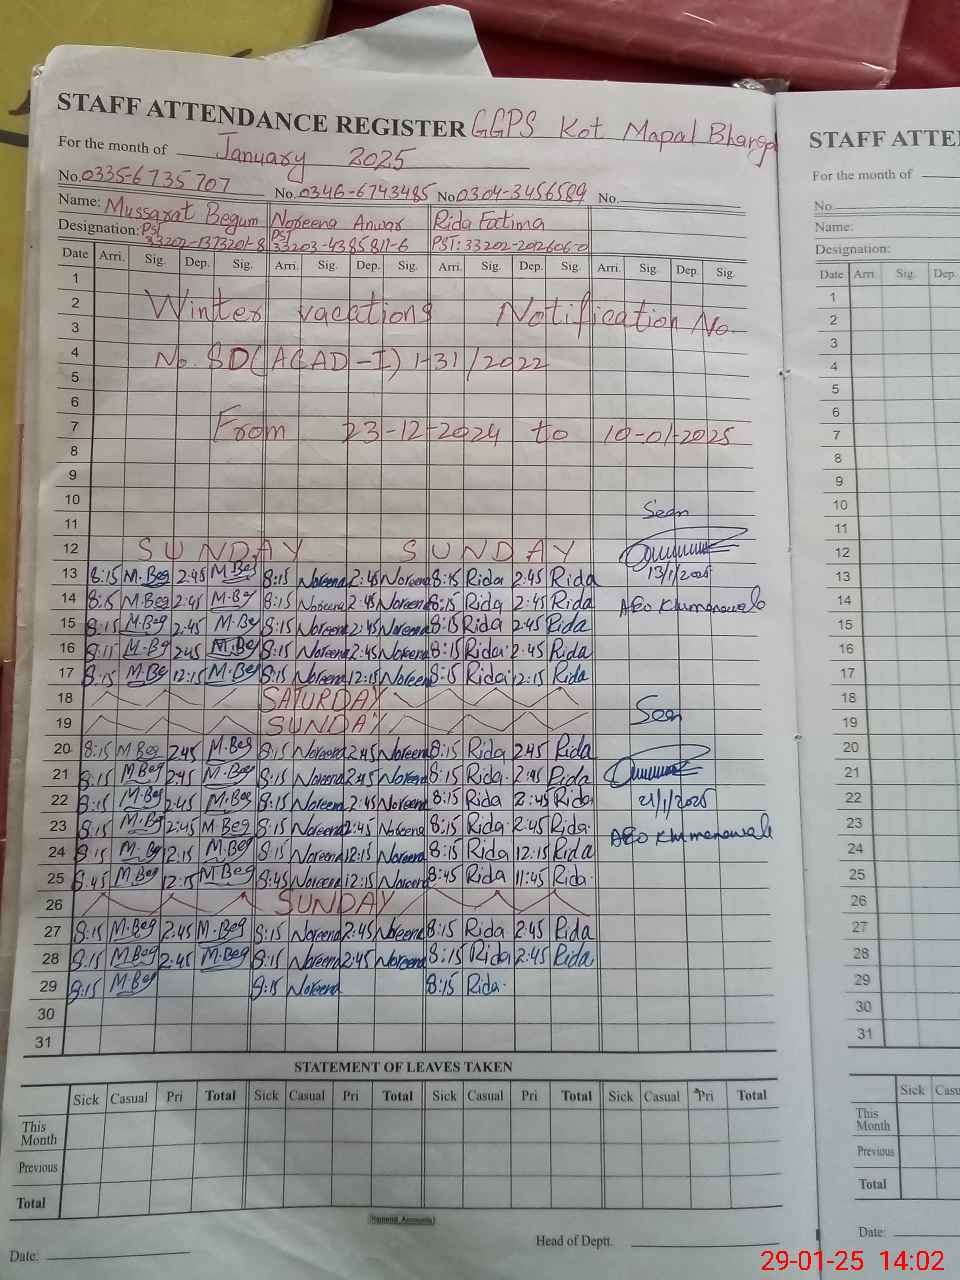 STAFF ATTENDANCE REGISTER GGPS Kot Mapal Bhangu
For the month of January 2025
No. 0335-6735707 No. 0346-6743485 No 0304-3456589 No.
Name: Mussarat Begum Noreena Anwar Rida Fatima
Designation: PST 33202-1373201-8 PST 33203-4385811-6 PST: 33202-2026060-0
Date Arri. Sig. Dep. Sig. Arri. Sig. Dep. Sig. Arri. Sig. Dep. Sig. Arri. Sig. Dep. Sig.
1
2 Winter vacations Notification No.
3
4 No. SD(ACAD-I) 1-31/2022
5
6
7 From 23-12-2024 to 10-01-2025
8
9
10 Seen
11
12 SUNDAY SUNDAY
13 8:15 M.Beg 2:45 M.Beg 8:15 Noreena 2:45 Noreena 8:15 Rida 2:45 Rida 13/1/2025
14 8:15 M.Beg 2:45 M.Beg 8:15 Noreena 2:45 Noreena 8:15 Rida 2:45 Rida AEO Khumanawali
15 8:15 M.Beg 2:45 M.Beg 8:15 Noreena 2:45 Noreena 8:15 Rida 2:45 Rida
16 8:15 M.Beg 2:45 M.Beg 8:15 Noreena 2:45 Noreena 8:15 Rida. 2:45 Rida
17 8:15 M.Beg 12:15 M.Beg 8:15 Noreena 12:15 Noreena 8:15 Rida. 12:15 Rida
18 SATURDAY
19 SUNDAY Seen
20 8:15 M.Beg 2:45 M.Beg 8:15 Noreena 2:45 Noreena 8:15 Rida 2:45 Rida
21 8:15 M.Beg 2:45 M.Beg 8:15 Noreena 2:45 Noreena 8:15 Rida. 2:45 Rida
22 8:15 M.Beg 2:45 M.Beg 8:15 Noreena 2:45 Noreena 8:15 Rida 2:45 Rida. 21/1/2025
23 8:15 M.Beg 2:45 M.Beg 8:15 Noreena 2:45 Noreena 8:15 Rida. 2:45 Rida. AEO Khumanawali
24 8:15 M.Beg 12:15 M.Beg 8:15 Noreena 12:15 Noreena 8:15 Rida 12:15 Rida
25 8:45 M.Beg 12:15 M.Beg 8:45 Noreena 12:15 Noreena 8:45 Rida 11:45 Rida.
26 SUNDAY
27 8:15 M.Beg 2:45 M.Beg 8:15 Noreena 2:45 Noreena 8:15 Rida 2:45 Rida
28 8:15 M.Beg 2:45 M.Beg 8:15 Noreena 2:45 Noreena 8:15 Rida 2:45 Rida.
29 8:15 M.Beg 8:15 Noreena 8:15 Rida.
30
31
STATEMENT OF LEAVES TAKEN
Sick Casual Pri Total Sick Casual Pri Total Sick Casual Pri Total Sick Casual Pri Total
This Month
Previous
Total
Date: Head of Deptt.
STAFF ATTE
For the month of
No.
Name:
Designation:
Date Arri. Sig. Dep.
1
2
3
4
5
6
7
8
9
10
11
12
13
14
15
16
17
18
19
20
21
22
23
24
25
26
27
28
29
30
31
Sick Casu
This Month
Previous
Total
Date:
29-01-25 14:02